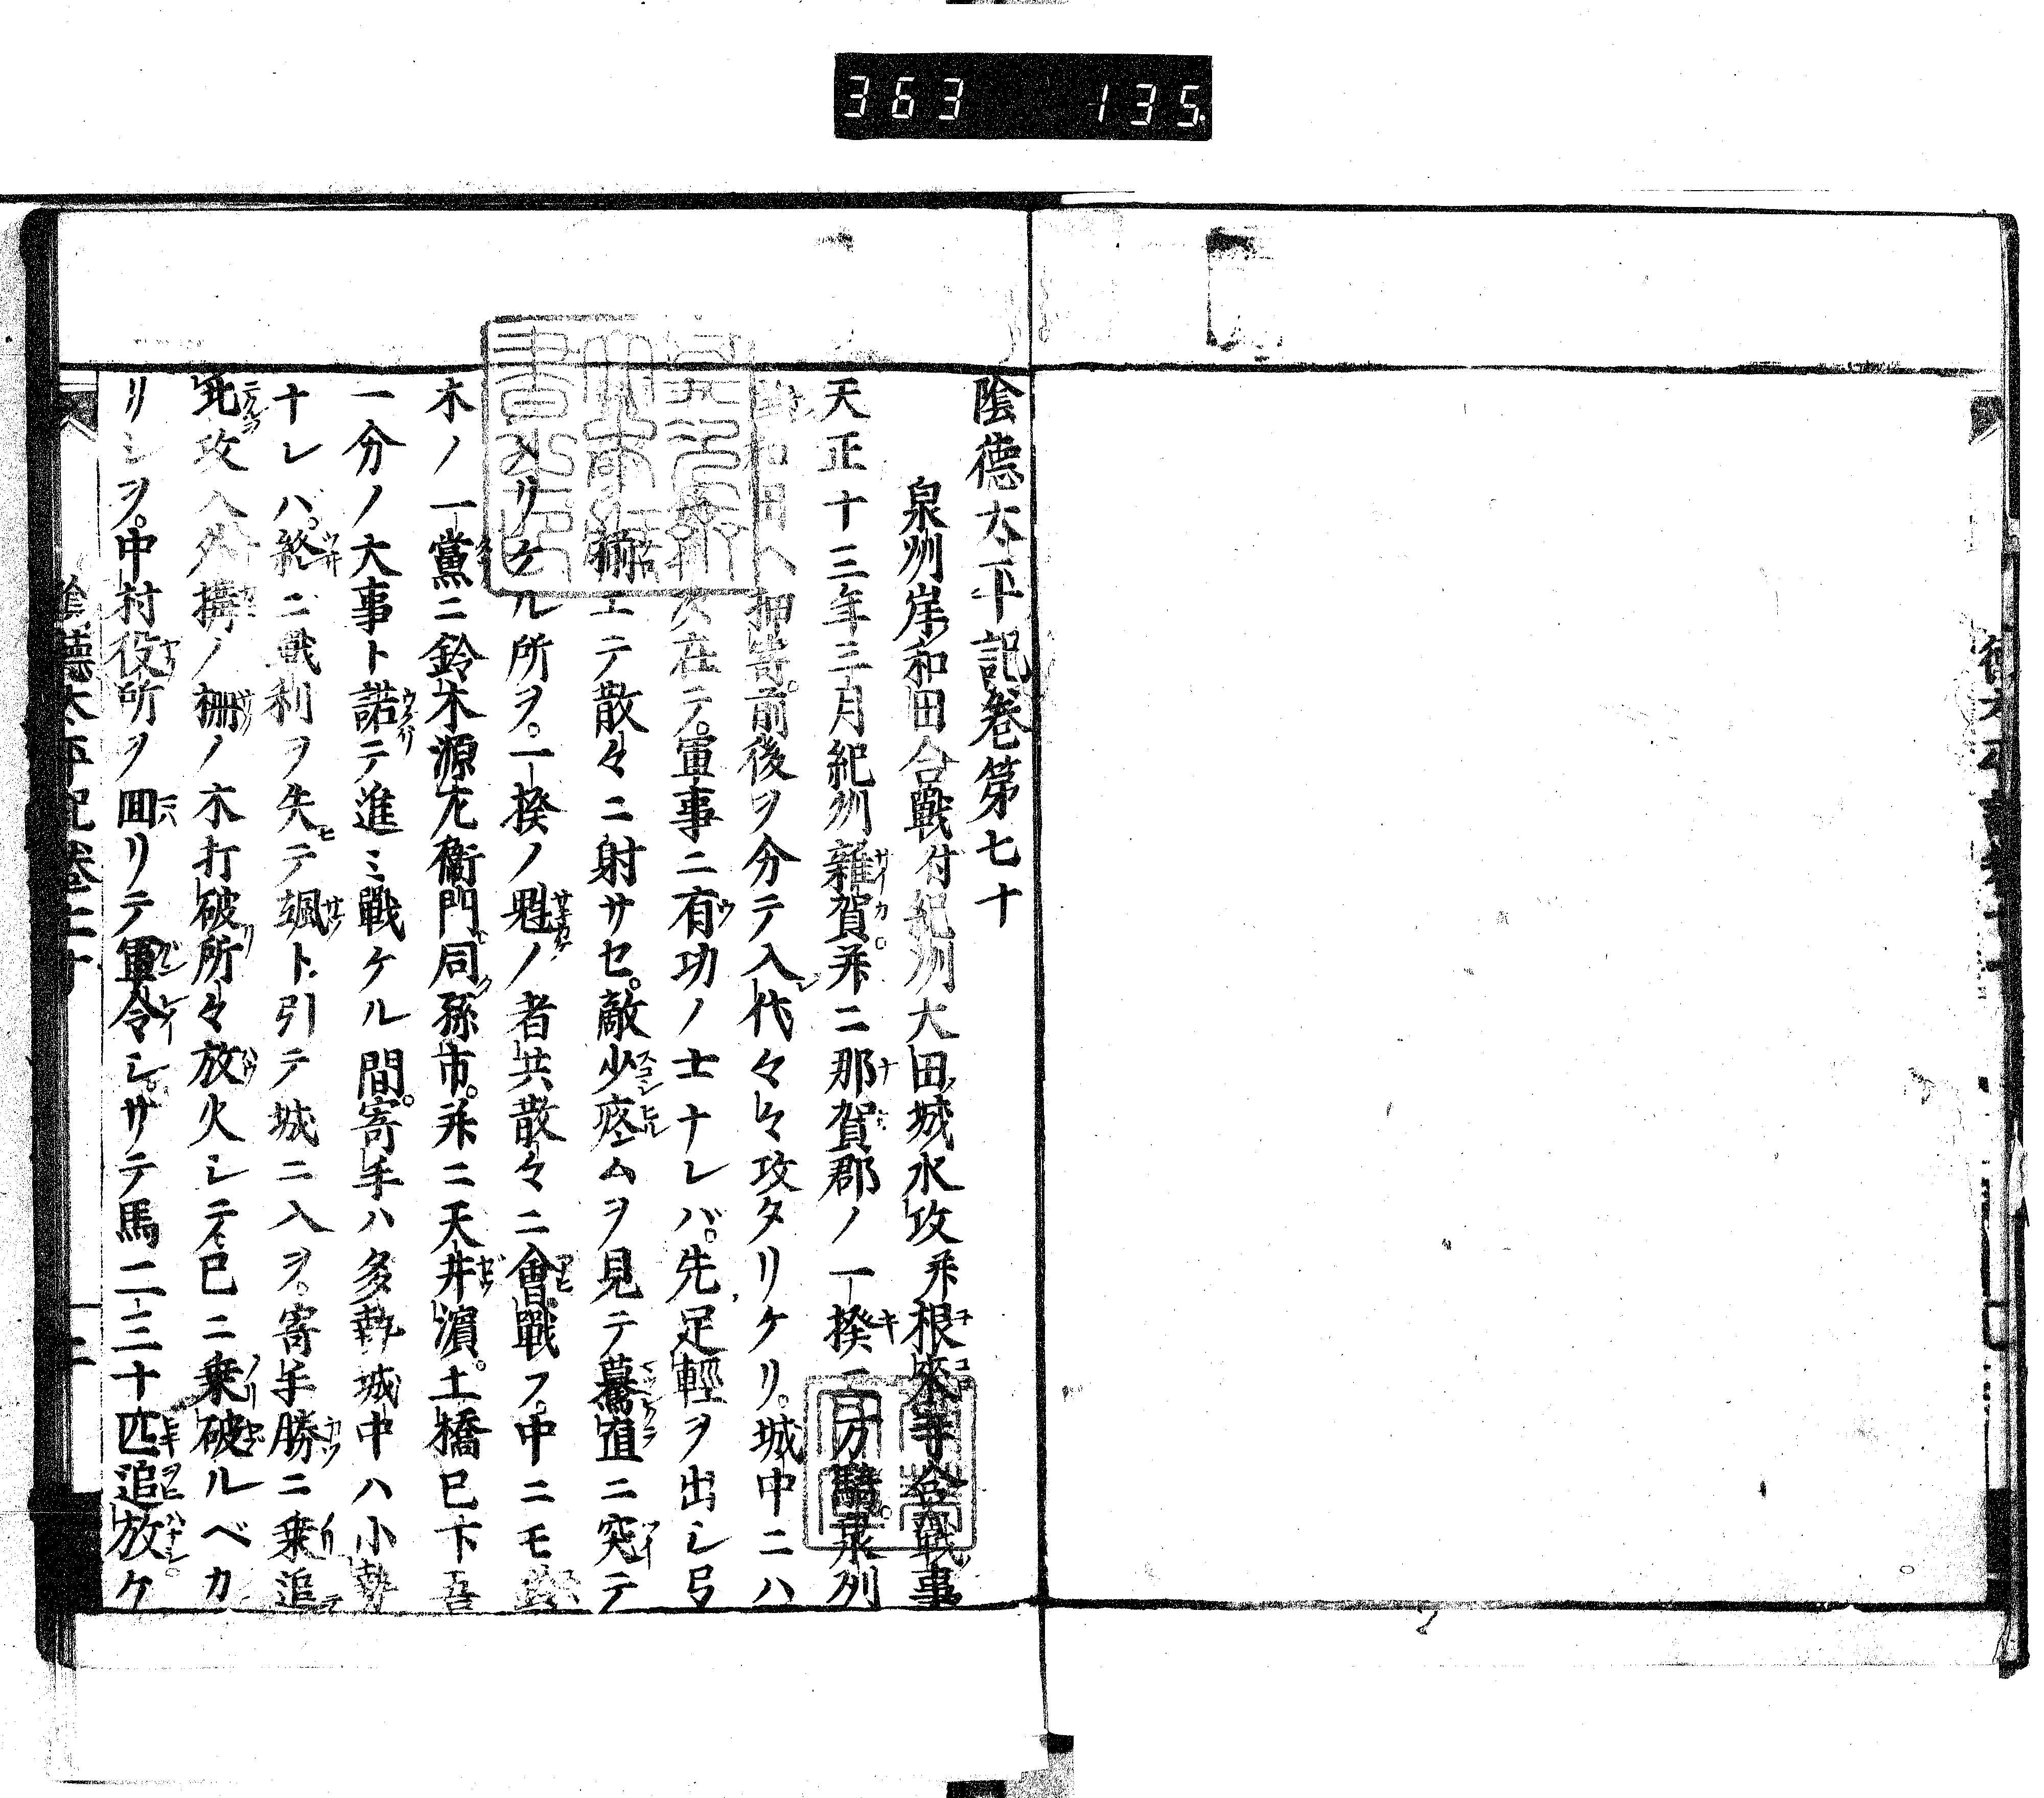 363 135
陰徳太平記巻第七十
泉州岸和田合戰付紀州大田ノ城水攻并根来寺合戰ノ事
天正十三年三月紀州雑賀。并ニ那賀郡ノ一揆二万騎。泉州
岸和田ヘ押寄。前後ヲ分テ入代々々攻タリケリ。城中ニハ
在テ。軍事ニ有功ノ士ナレバ。先足輕ヲ出シ弓
揃エテ散々ニ射サセ。敵少疼ムヲ見テ驀直ニ突テ
リケル所ヲ。一揆ノ魁ノ者共散々ニ會戰フ。中ニモ鈴
木ノ一黨ニ鈴木源左衞門同孫市。并ニ天井濱。土橋已下吾
一分ノ大事ト諾テ進ミ戰ケル間。寄手ハ多勢城中ハ小勢
ナレバ。終ニ戰利ヲ失テ颯ト引テ城ニ入ヲ。寄手勝ニ乗追
北攻入外構ノ柵ノ木打破所々放火シテ已ニ乗破ルベカ
リシヲ。中村役所ヲ囬リテ軍令シ。サテ馬二三十匹追放ケ
陰徳太平記巻七十 一